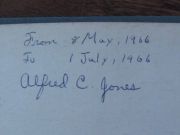 From 8 May, 1966
To 1 July, 1966
Alfred C. Jones